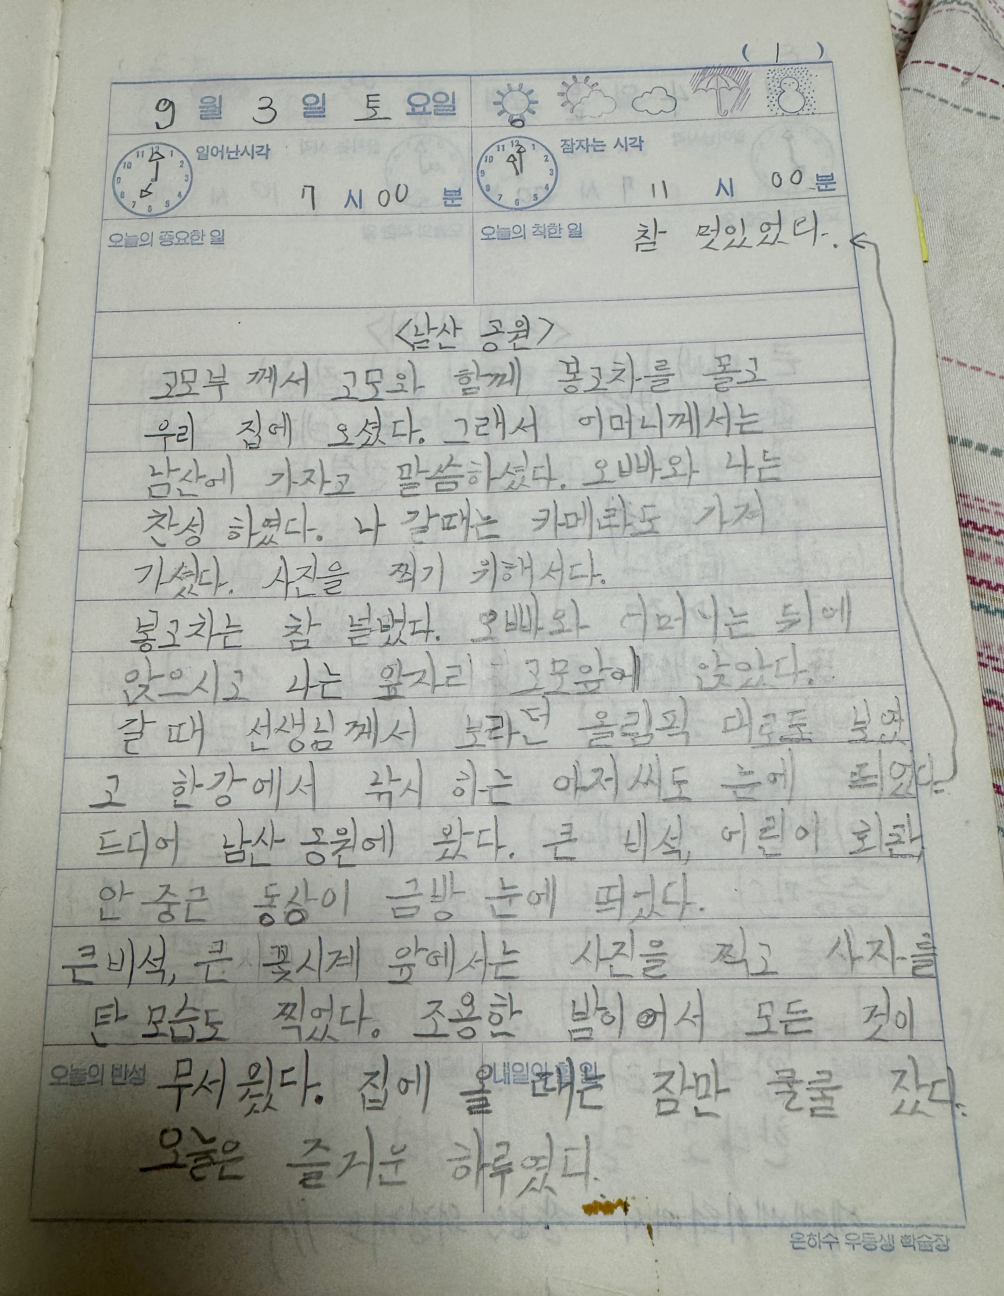 ( 1 )
9 월 3 일 토 요일
일어난시각
7 시 00 분
잠자는 시각
11 시 00 분
오늘의 중요한 일
오늘의 착한 일
참 멋있었다.
<남산 공원>
고모부 께서 고모와 함께 봉고차를 몰고
우리 집에 오셨다. 그래서 어머니께서는
남산에 가자고 말씀하셨다. 오빠와 나는
찬성 하였다. 나 갈때는 카메라도 가저
가셨다. 사진을 찍기 위해서다.
봉고차는 참 넓었다. 오빠와 어머니는 뒤에
앉으시고 나는 앞자리 고모앞에 앉았다.
갈 때 선생님께서 보라던 올림픽 대로도 보았
고 한강에서 낚시 하는 아저씨도 눈에 띄었다.
드디어 남산 공원에 왔다. 큰 비석, 어린이 회관,
안 중근 동상이 금방 눈에 띄었다.
큰비석, 큰 꽃시계 앞에서는 사진을 찍고 사자를
탄 모습도 찍었다. 조용한 밤이어서 모든 것이
오늘의 반성
내일의 할 일
무서웠다. 집에 올 때는 잠만 쿨쿨 잤다.
오늘은 즐거운 하루였다.
은하수 우등생 학습장